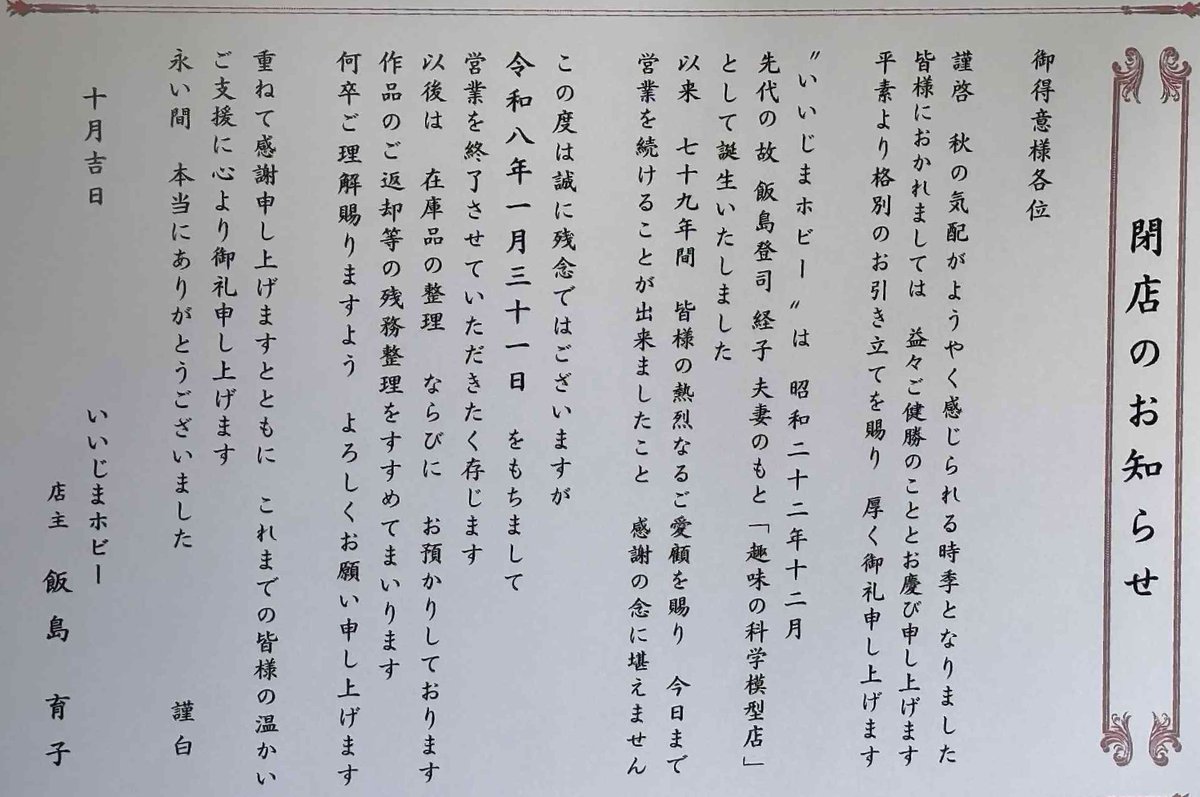 閉店のお知らせ
御得意様各位
謹啓　秋の気配がようやく感じられる時季となりました
皆様におかれましては　益々ご健勝のこととお慶び申し上げます
平素より格別のお引き立てを賜り　厚く御礼申し上げます
〝いいじまホビー〟は　昭和二十二年十二月
先代の故 飯島登司 経子 夫妻のもと「趣味の科学模型店」
として誕生いたしました
以来　七十九年間　皆様の熱烈なるご愛顧を賜り　今日まで
営業を続けることが出来ましたこと　感謝の念に堪えません
この度は誠に残念ではございますが
令和八年一月三十一日　をもちまして
営業を終了させていただきたく存じます
以後は　在庫品の整理　ならびに　お預かりしております
作品のご返却等の残務整理をすすめてまいります
何卒ご理解賜りますよう　よろしくお願い申し上げます
重ねて感謝申し上げますとともに　これまでの皆様の温かい
ご支援に心より御礼申し上げます
永い間　本当にありがとうございました
謹白
十月吉日
いいじまホビー
店主　飯島　育子